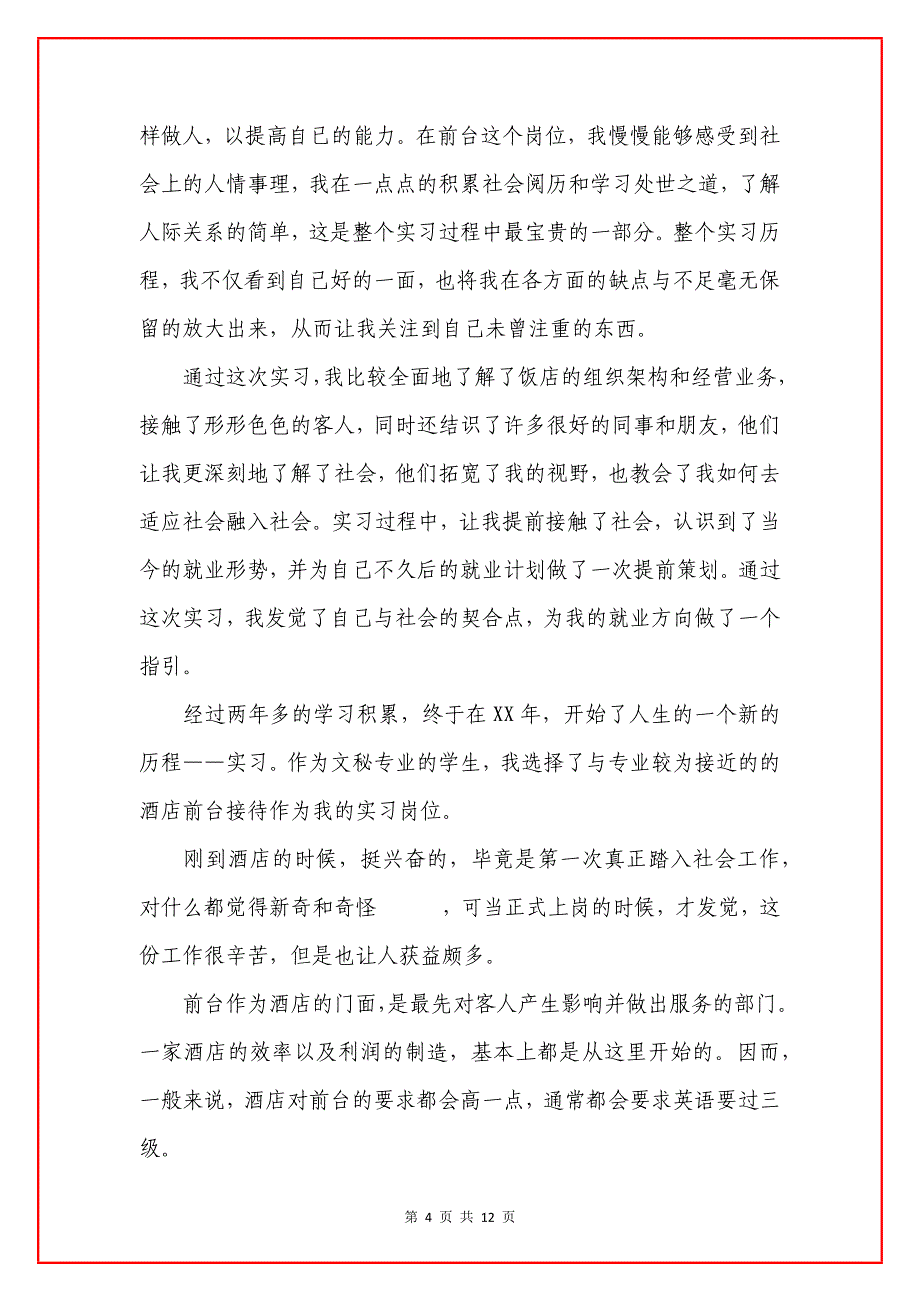 样做人，以提高自已的能力。在前台这个岗位，我慢慢能够感受到社
会上的人情事理，我在一点点的积累社会阅历和学习处世之道，了解
人际关系的简单，这是整个实习过程中最宝贵的一部分。整个实习历
程，我不仅看到自己好的一面，也将我在各方面的缺点与不足毫无保
留的放大出来，从而让我关注到自己未曾注重的东西。
通过这次实习，我比较全面地了解了饭店的组织架构和经营业务，
接触了形形色色的客人，同时还结识了许多很好的同事和朋友，他们
让我更深刻地了解了社会，他们拓宽了我的视野，也教会了我如何去
适应社会融入社会。实习过程中，让我提前接触了社会，认识到了当
今的就业形势，并为自己不久后的就业计划做了一次提前策划。通过
这次实习，我发觉了自己与社会的契合点，为我的就业方向做了一个
指引。
经过两年多的学习积累，终于在 XX 年，开始了人生的一个新的
历程——实习。作为文秘专业的学生，我选择了与专业较为接近的的
酒店前台接待作为我的实习岗位。
刚到酒店的时候，挺兴奋的，毕竟是第一次真正踏入社会工作，
对什么都觉得新奇和奇怪　　　，可当正式上岗的时候，才发觉，这
份工作很辛苦，但是也让人获益颇多。
前台作为酒店的门面，是最先对客人产生影响并做出服务的部门。
一家酒店的效率以及利润的制造，基本上都是从这里开始的。因而，
一般来说，酒店对前台的要求都会高一点，通常都会要求英语要过三
级。
第 4 页 共 12 页